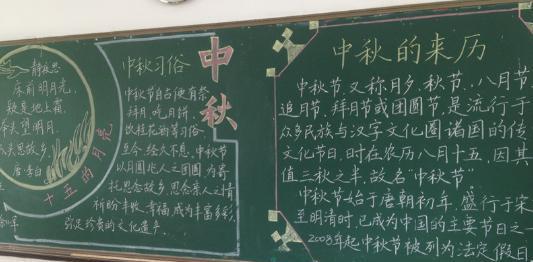 静夜思
床前明月光,
疑是地上霜.
举头望明月,
低头思故乡.
唐·李白
十五的月亮
中秋
中秋习俗
中秋节自古便有祭
月、赏月、拜月、吃月饼、
饮桂花酒等习俗
至今,经久不息。中秋节
以月圆兆人之团圆,为寄
托思念故乡,思念亲人之情
祈盼丰收、幸福,成为丰富多彩、
弥足珍贵的文化遗产。
中秋的来历
中秋节,又称月夕、秋节、八月节、
追月节、拜月节或团圆节,是流行于
众多民族与汉字文化圈诸国的传
文化节日,时在农历八月十五,因其
值三秋之半,故名“中秋节”
中秋节始于唐朝初年,盛行于宋
至明清时,已成为中国的主要节日之一
2008年起中秋节被列为法定假日